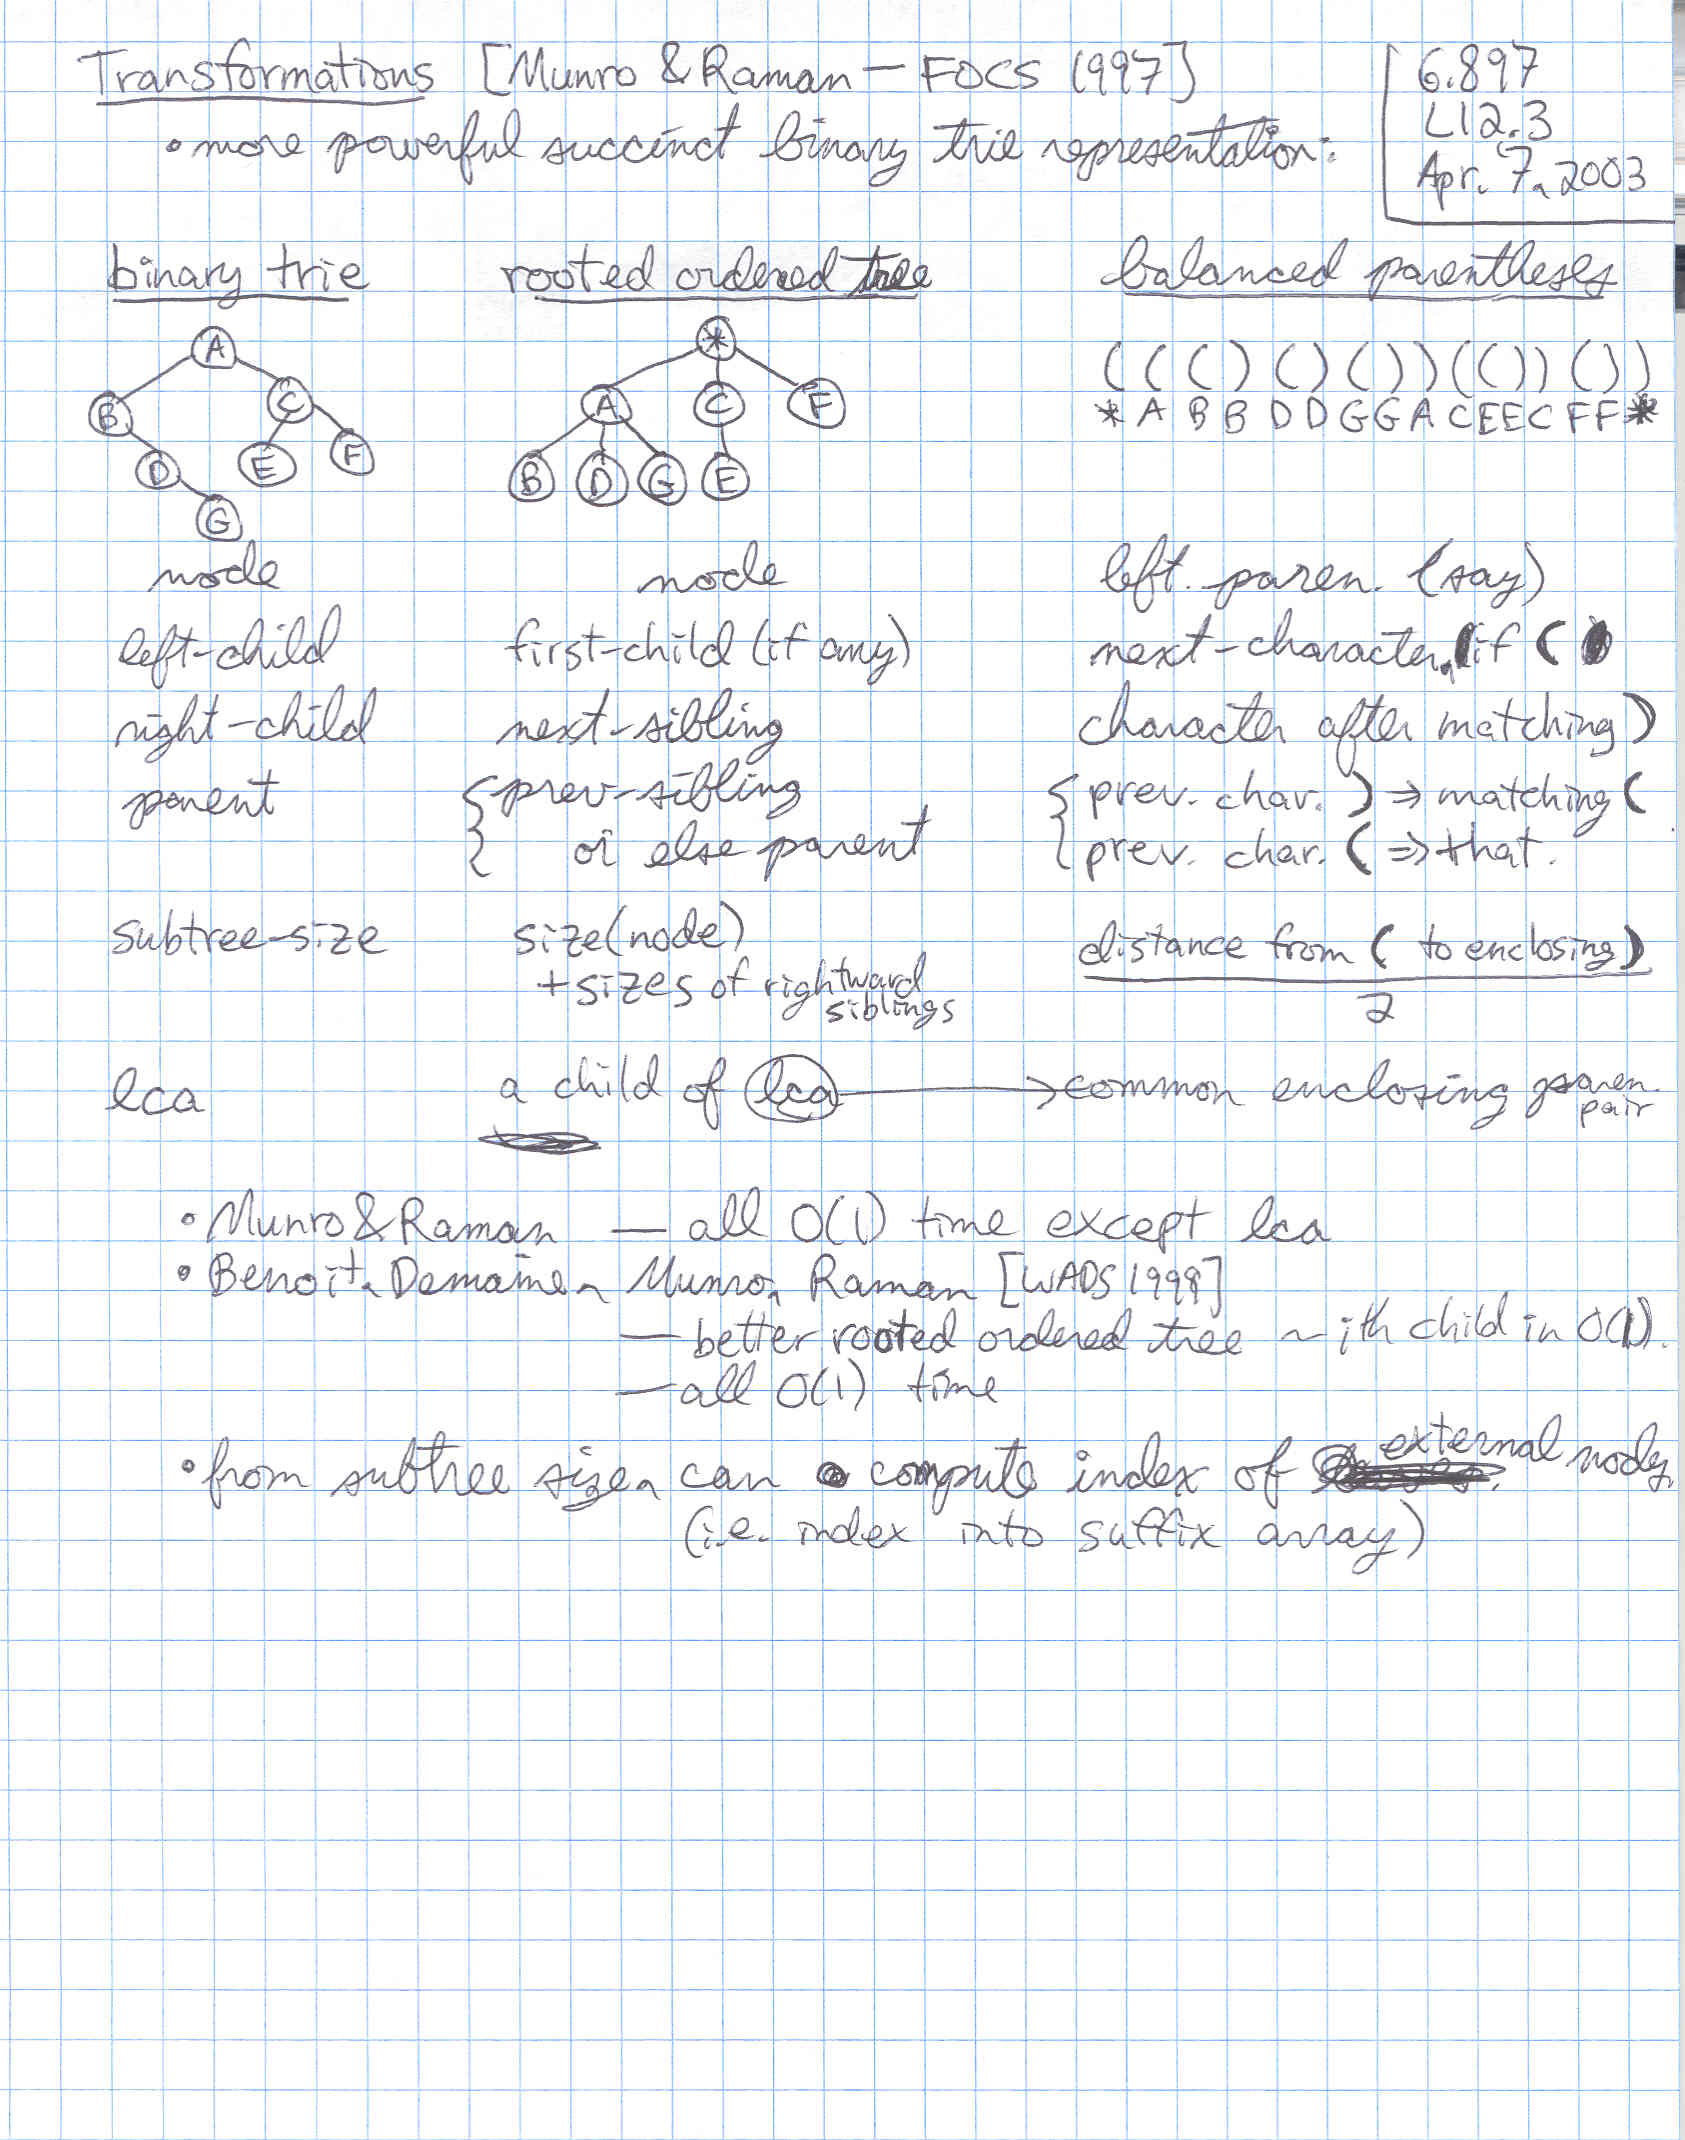 Transformations [Munro & Raman — FOCS 1997]
6.897
L12.3
Apr. 7, 2003
• more powerful succinct binary trie representation:
binary trie rooted ordered tree balanced parentheses
A
B C
D E F
G
*
A C F
B D G E
( ( ( ) ( ) ( ) ) ( ( ) ) ( ) )
* A B B D D G G A C E E C F F *
node node left paren. (say)
left-child first-child (if any) next-character, if (
right-child next-sibling character after matching )
parent { prev-sibling { prev. char. ) ⇒ matching (
or else parent prev. char. ( ⇒ that.
subtree-size size(node) distance from ( to enclosing )
+ sizes of rightward siblings 2
lca a child of lca → common enclosing paren. pair
• Munro & Raman — all O(1) time except lca
• Benoit, Demaine, Munro, Raman [WADS 1998]
— better rooted ordered tree ~ ith child in O(1).
— all O(1) time
• from subtree size, can compute index of external node,
(i.e. index into suffix array)